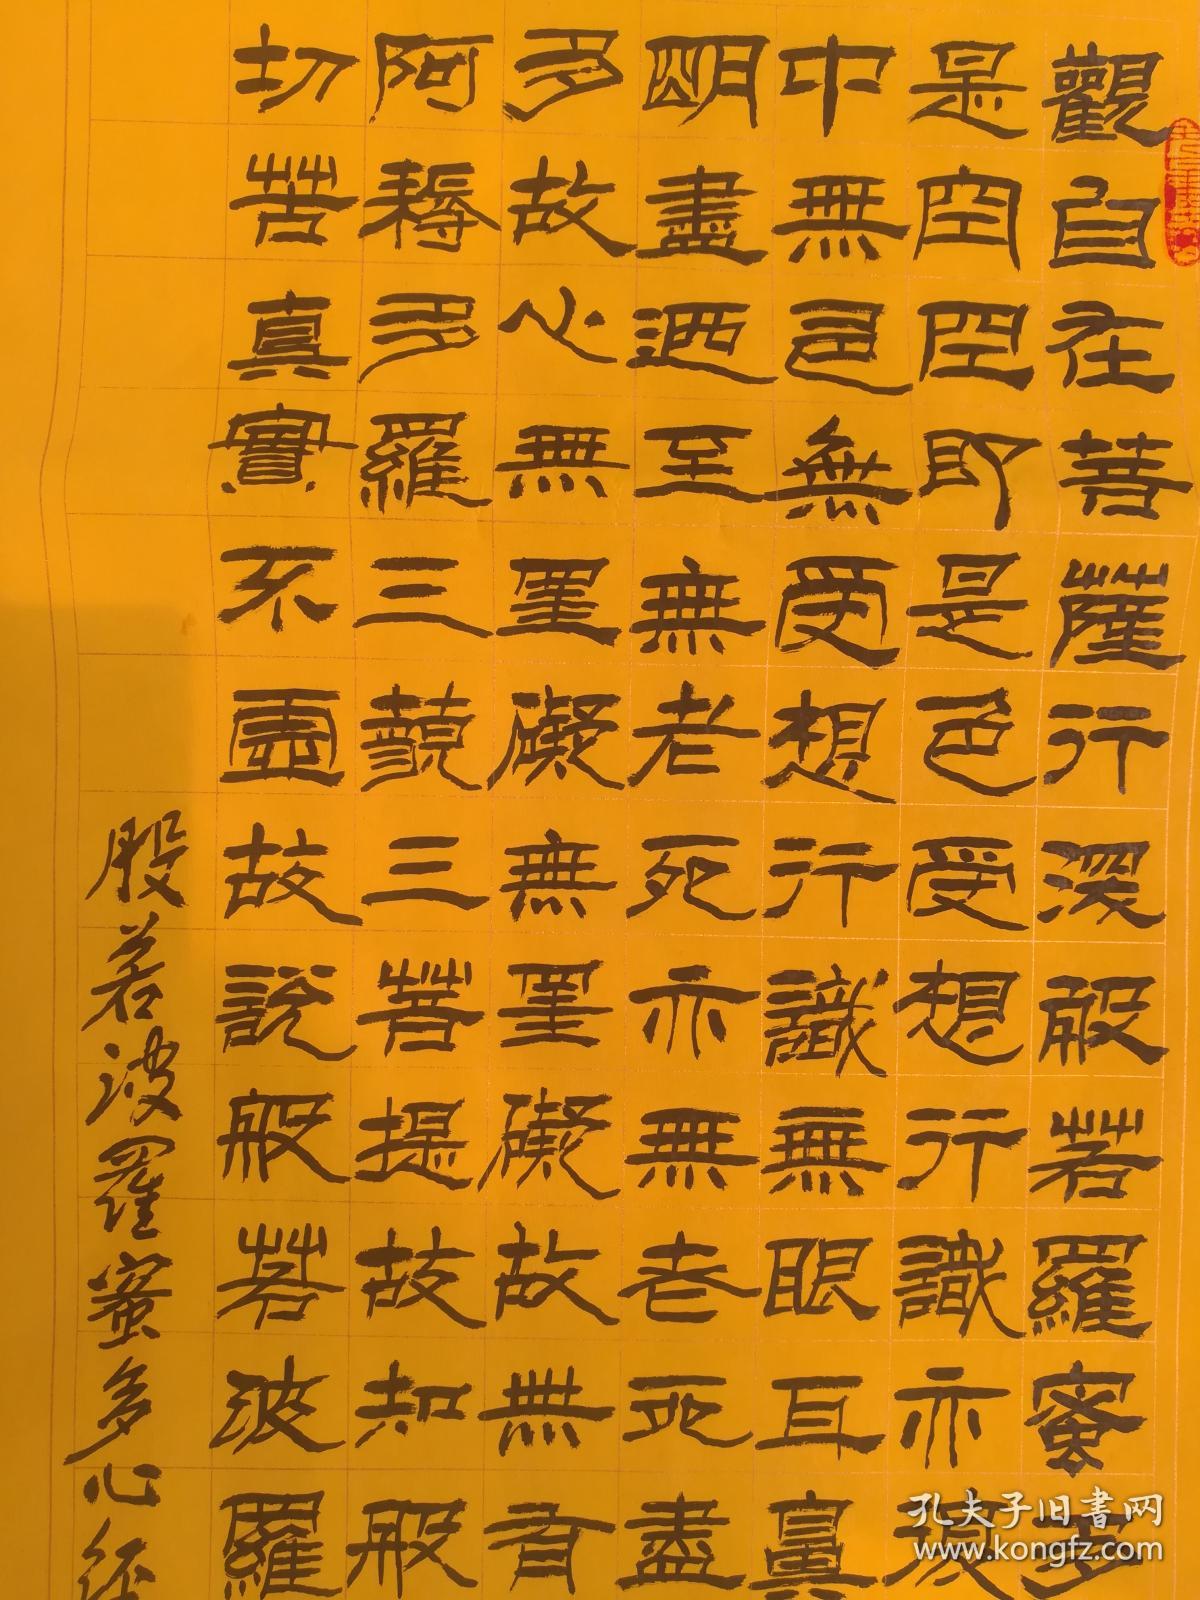 觀自在菩薩行深般若羅蜜多
是空空即是色受想行識亦復
中無色無受想行識無眼耳鼻
明盡迺至無老死亦無老死盡
多故心無罣礙無罣礙故無有
阿耨多羅三藐三菩提故知般
切苦真實不虛故說般若波羅
般若波羅蜜多心经
孔夫子旧書网
www.kongfz.com